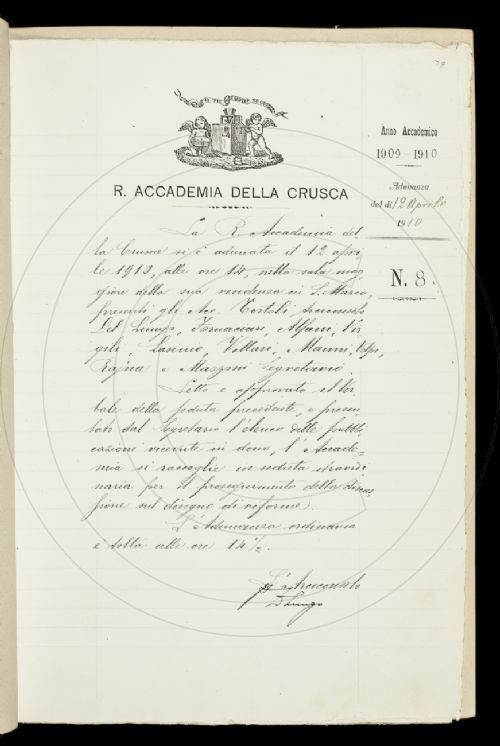 79
Anno Accademico
1909-1910
R. ACCADEMIA DELLA CRUSCA
Adunanza
del dì 12 Aprile
1910
N. 8.
La R. Accademia del
la Crusca si è adunata il 12 apri
le 1910, alle ore 14, nella sala mag
giore della sua residenza in S. Marco,
presenti gli Acc. Tortoli
Del Lungo, Fornaciari, Alfani, Vir
gili, Lasinio, Villari, Manni, Volpi,
Rajna e Mazzoni Segretario.
Letto e approvato il Ver
bale della seduta precedente, e presen
tati dal Segretario l'elenco delle pubbli
cazioni ricevute in dono, l'Accade=
mia si raccoglie in seduta straordi
naria per il proseguimento della discus
sione sul disegno di riforme.
L'Adunanza ordinaria
è tolta alle ore 14 1/2.
D Lungo